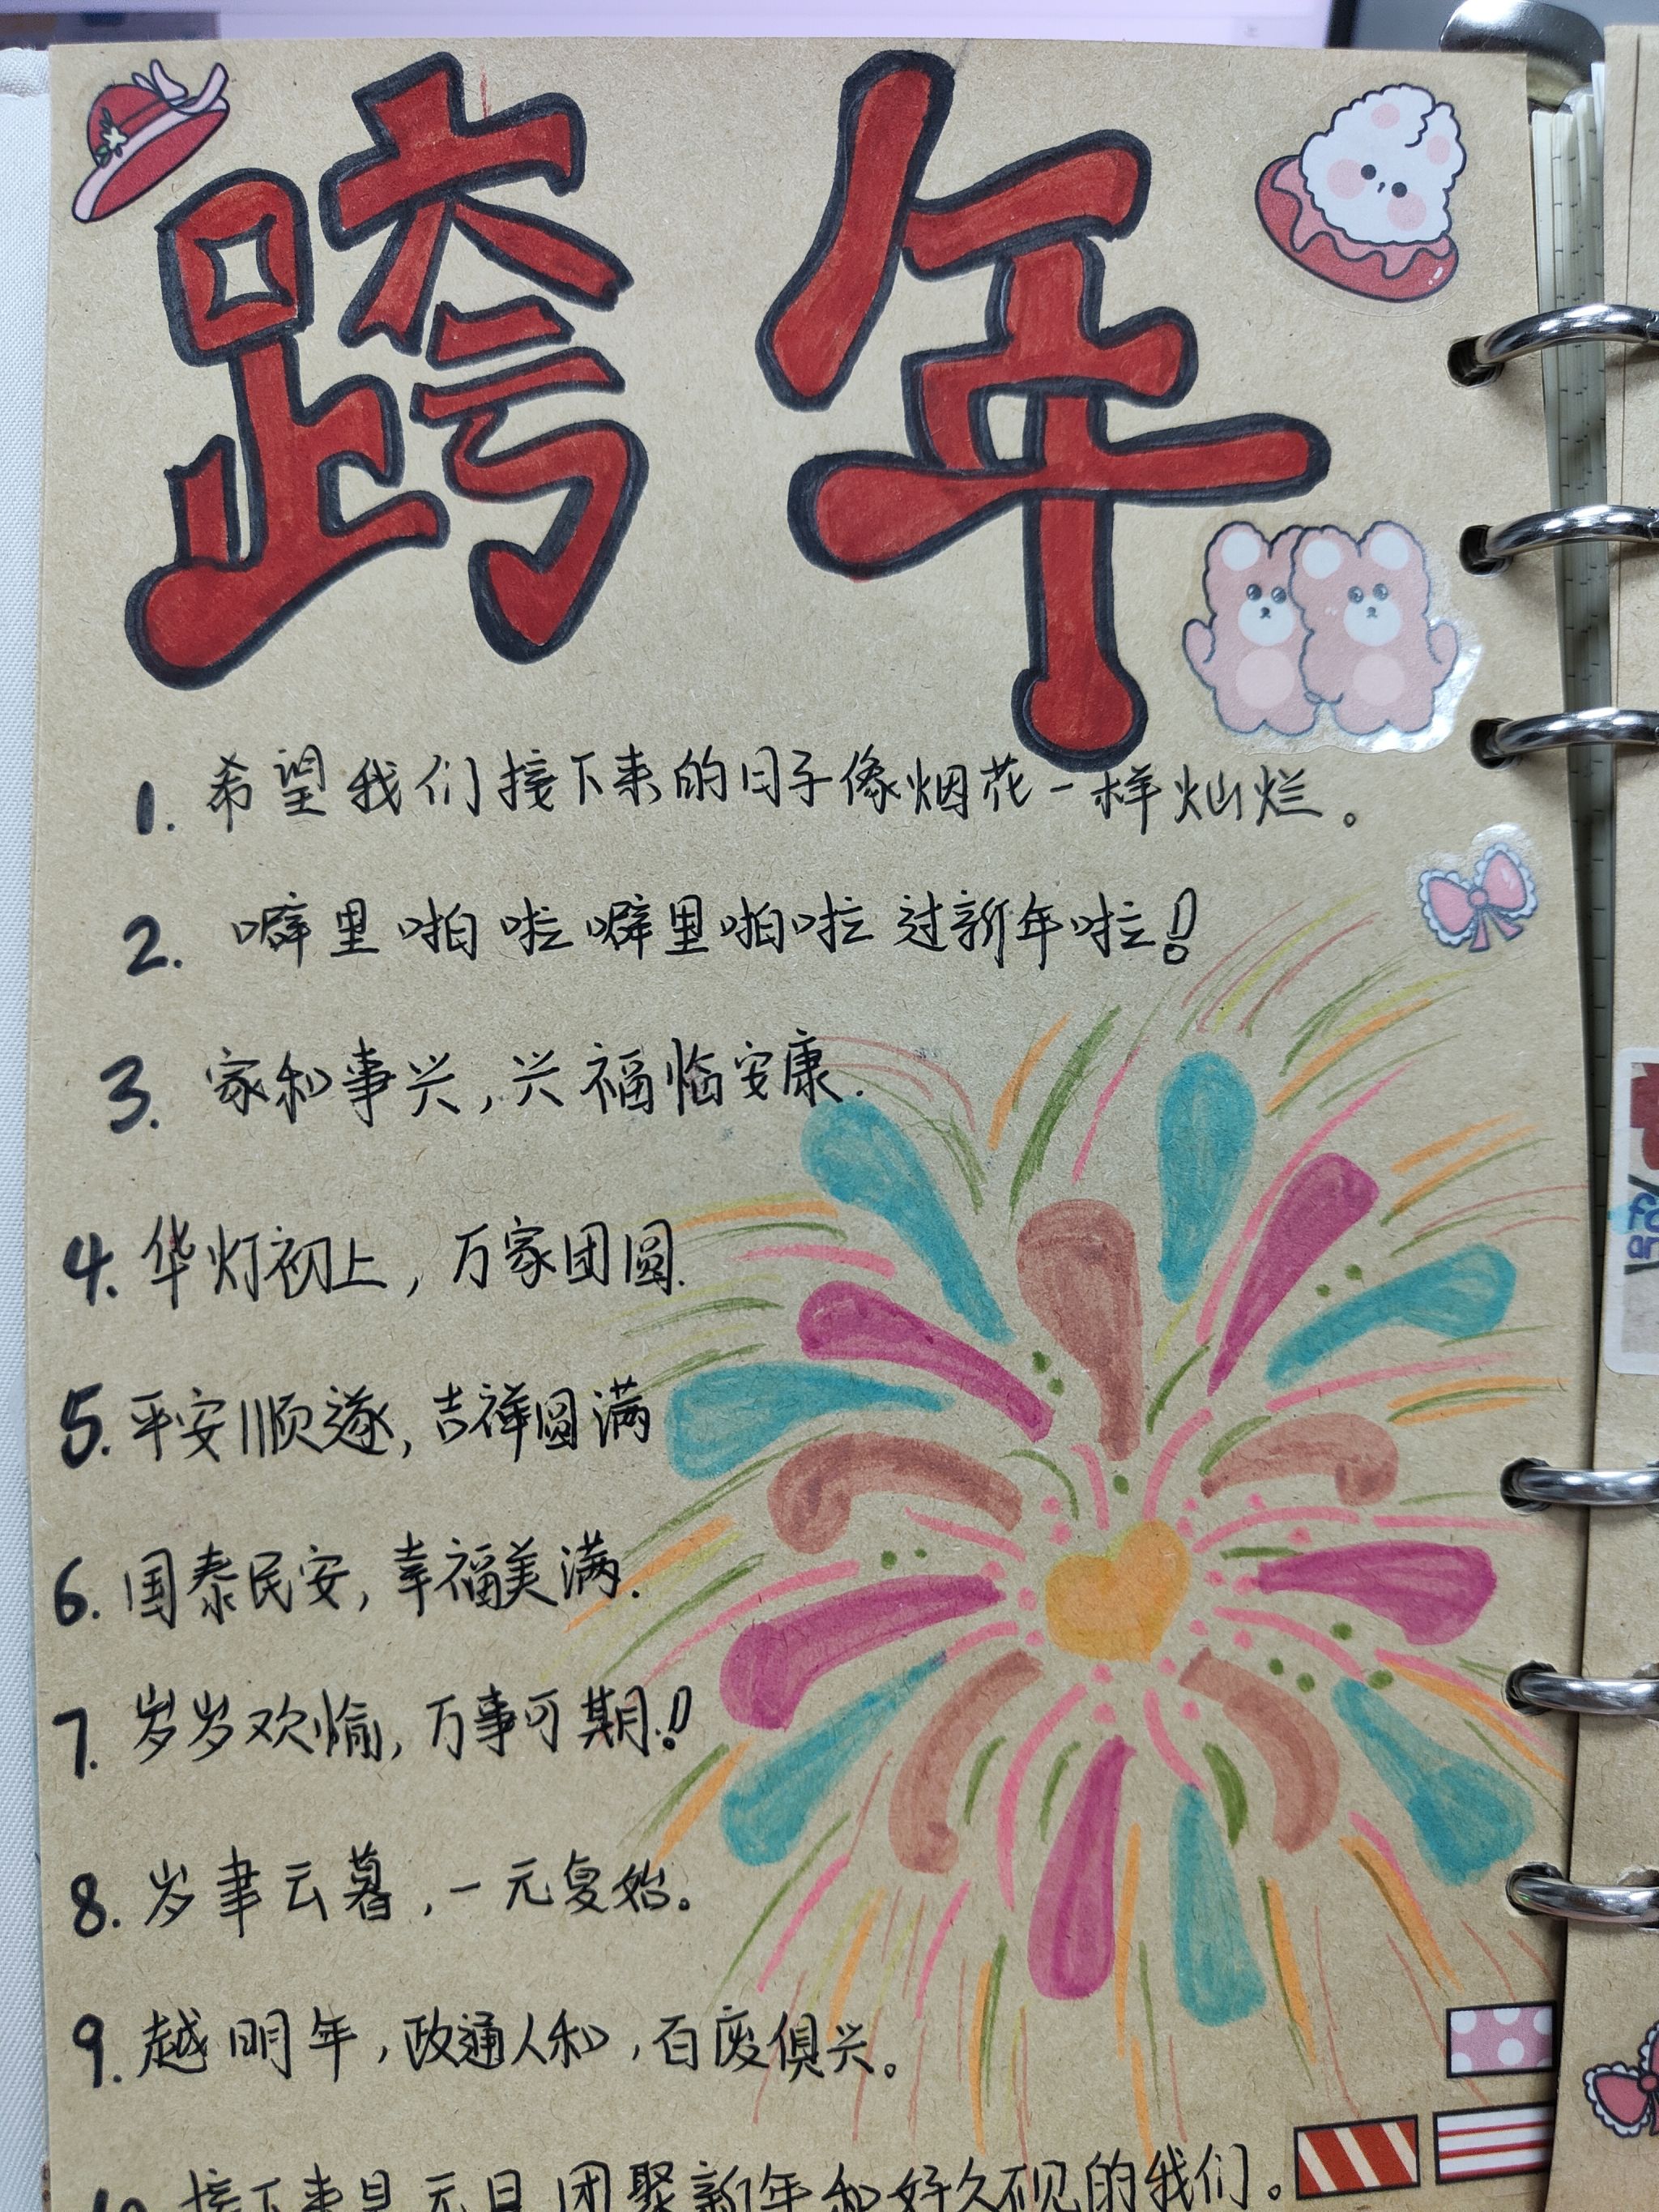 跨年
1. 希望我们接下来的日子像烟花一样灿烂。
2. 噼里啪啦噼里啪啦过新年啦!
3. 家和事兴,兴福临安康.
4. 华灯初上,万家团圆.
5. 平安顺遂,吉祥圆满
6. 国泰民安,幸福美满.
7. 岁岁欢愉,万事可期.!
8. 岁聿云暮,一元复始。
9. 越明年,政通人和,百废俱兴。
10. 接下来是元旦 团聚新年和好久不见的我们。